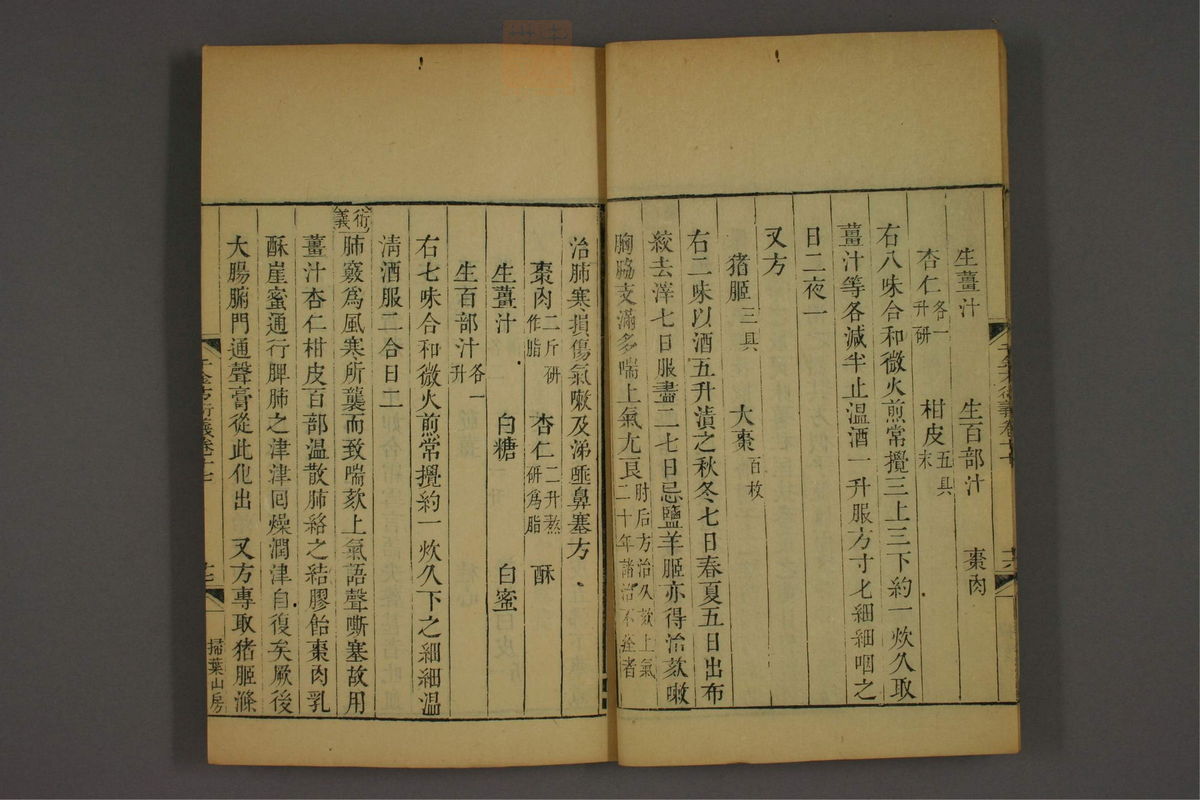 生薑汁　生百部汁　棗肉
杏仁各一升研　柑皮五具末
右八味合和微火煎常攪三上三下約一炊久取
薑汁等各減半止温酒一升服方寸匕細細咽之
日二夜一
又方
猪胰三具　大棗百枚
右二味以酒五升漬之秋冬七日春夏五日出布
絞去滓七日服盡二七日忌鹽羊胰亦得治欬嗽
胸脇支滿多喘上氣尤良肘后方治久欬上氣二十年諸治不痊者
治肺寒損傷氣嗽及涕唾鼻塞方
棗肉二斤研作脂　杏仁二升熬研爲脂　酥
生薑汁　白糖　白蜜
生百部汁各一升
右七味合和微火煎常攪約一炊久下之細細温
清酒服二合日二
衍義肺竅爲風寒所襲而致喘欬上氣語聲嘶塞故用
薑汁杏仁柑皮百部温散肺絡之結膠飴棗肉乳
酥崖蜜通行脾肺之津津回燥潤津自復矣厥後
大腸腑門通聲膏從此化出　又方專取猪胰滌
千金方衍義卷十七
掃葉山房